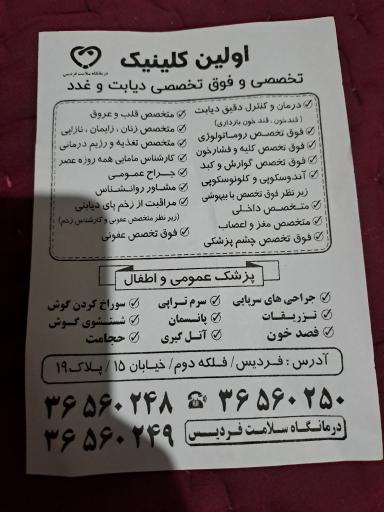 اولین کلینیک
درمانگاه سلامت فردیس
تخصصی و فوق تخصصی دیابت و غدد
درمان و کنترل دقیق دیابت
(قندخون، قند خون بارداری)
فوق تخصص روماتولوژی
فوق تخصص کلیه و فشارخون
فوق تخصص گوارش و کبد
آندوسکوپی و کلونوسکوپی
زیر نظر فوق تخصص با بیهوشی
متخصص داخلی
متخصص مغز و اعصاب
فوق تخصص چشم پزشکی
متخصص قلب و عروق
متخصص زنان، زایمان، نازایی
متخصص تغذیه و رژیم درمانی
کارشناس مامایی همه روزه عصر
جراح عمومی
مشاور روانشناس
مراقبت از زخم پای دیابتی
(زیر نظر متخصص عفونی و کارشناس زخم)
فوق تخصص عفونی
پزشک عمومی و اطفال
جراحی های سرپایی
سرم تراپی
سوراخ کردن گوش
تزریقات
پانسمان
شستشوی گوش
فصد خون
آتل گیری
حجامت
آدرس: فردیس/ فلکه دوم/ خیابان ۱۵ / پلاک۱۹
۳۶ ۵۶۰ ۲۵۰
۳۶ ۵۶۰ ۲۴۸
درمانگاه سلامت فردیس
۳۶ ۵۶۰ ۲۴۹